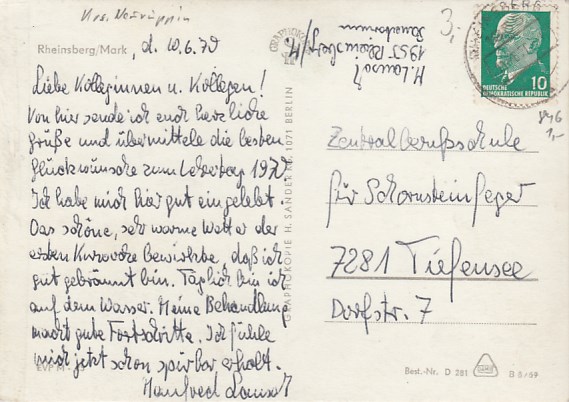 Krs. Neuruppin
Rheinsberg/Mark, d. 10.6.70
Liebe Kolleginnen u. Kollegen!
Von hier sende ich euch herzliche
Grüße und übermittele die besten
Glückwünsche zum Lehrertag 1970
Ich habe mich hier gut eingelebt.
Das schöne, sehr warme Wetter der
ersten Kurwoche bewirkte, daß ich
gut gebräunt bin. Täglich bin ich
auf dem Wasser. Meine Behandlung
macht gute Fortschritte. Ich fühle
mich jetzt schon spürbar erholt.
Manfred
EVP M
GRAPHOKOPIE H. SANDER KG, 1071 BERLIN
1955 Rheinsberg/M.
3,-
DEUTSCHE
DEMOKRATISCHE REPUBLIK
10
846
1,-
Zentralberufsschule
für Schornsteinfeger
7281 Tiefensee
Dorfstr. 7
Best.-Nr. D 281
B 5/69